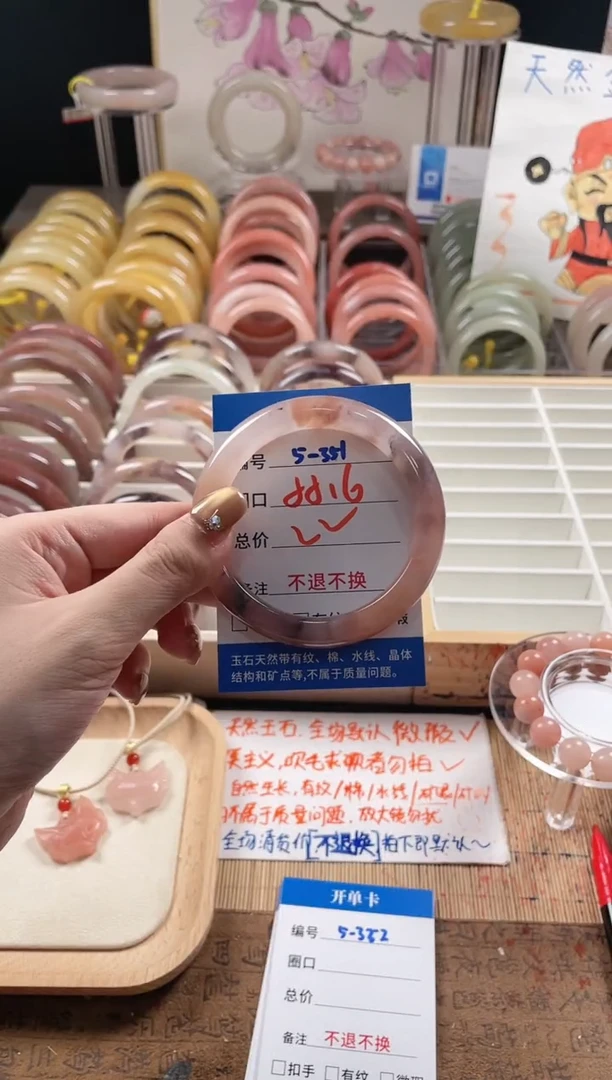 天然
编号 5-351
口
总价
备注 不退不换
玉石天然带有纹、棉、水线、晶体
结构和矿点等,不属于质量问题。
天然玉石.全场默认微瑕
美主义,吹毛求疵者勿拍
自然生长,有纹/棉/水线/
所属于质量问题.放大镜勿扰
全场清货价[不退换]拍下即默认~
开单卡
编号 5-352
圈口
总价
备注 不退不换
扣手 有纹 微瑕